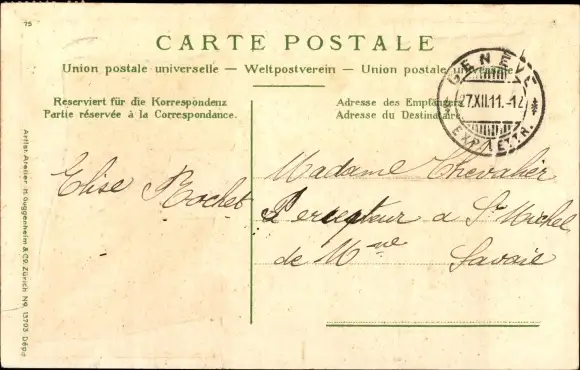 75
CARTE POSTALE
Union postale universelle — Weltpostverein — Union postale universelle
Reserviert für die Korrespondenz
Partie réservée à la Correspondance.
Adresse des Empfängers
Adresse du Destinataire.
GENÈVE
27.XII.11.-12
EXP. LETTR.
Elise Rochet
Madame Chevalier
Percepteur a St Michel
de Mne Savoie
Artist. Atelier H. Guggenheim & Co. Zürich No. 13703 Dépo